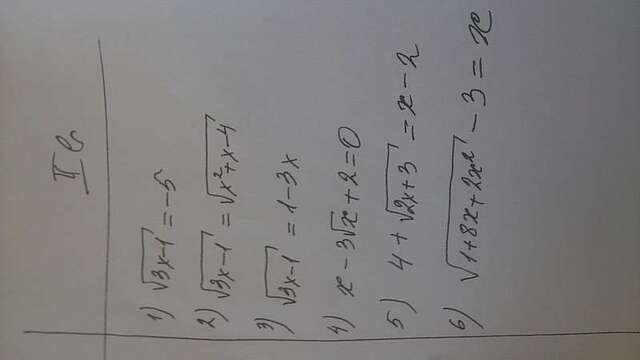 II в
1) √3x-1 = -5
2) √3x-1 = √x²+x-4
3) √3x-1 = 1-3x
4) x - 3√x + 2 = 0
5) 4 + √2x+3 = x - 2
6) √1+8x+2x² - 3 = x